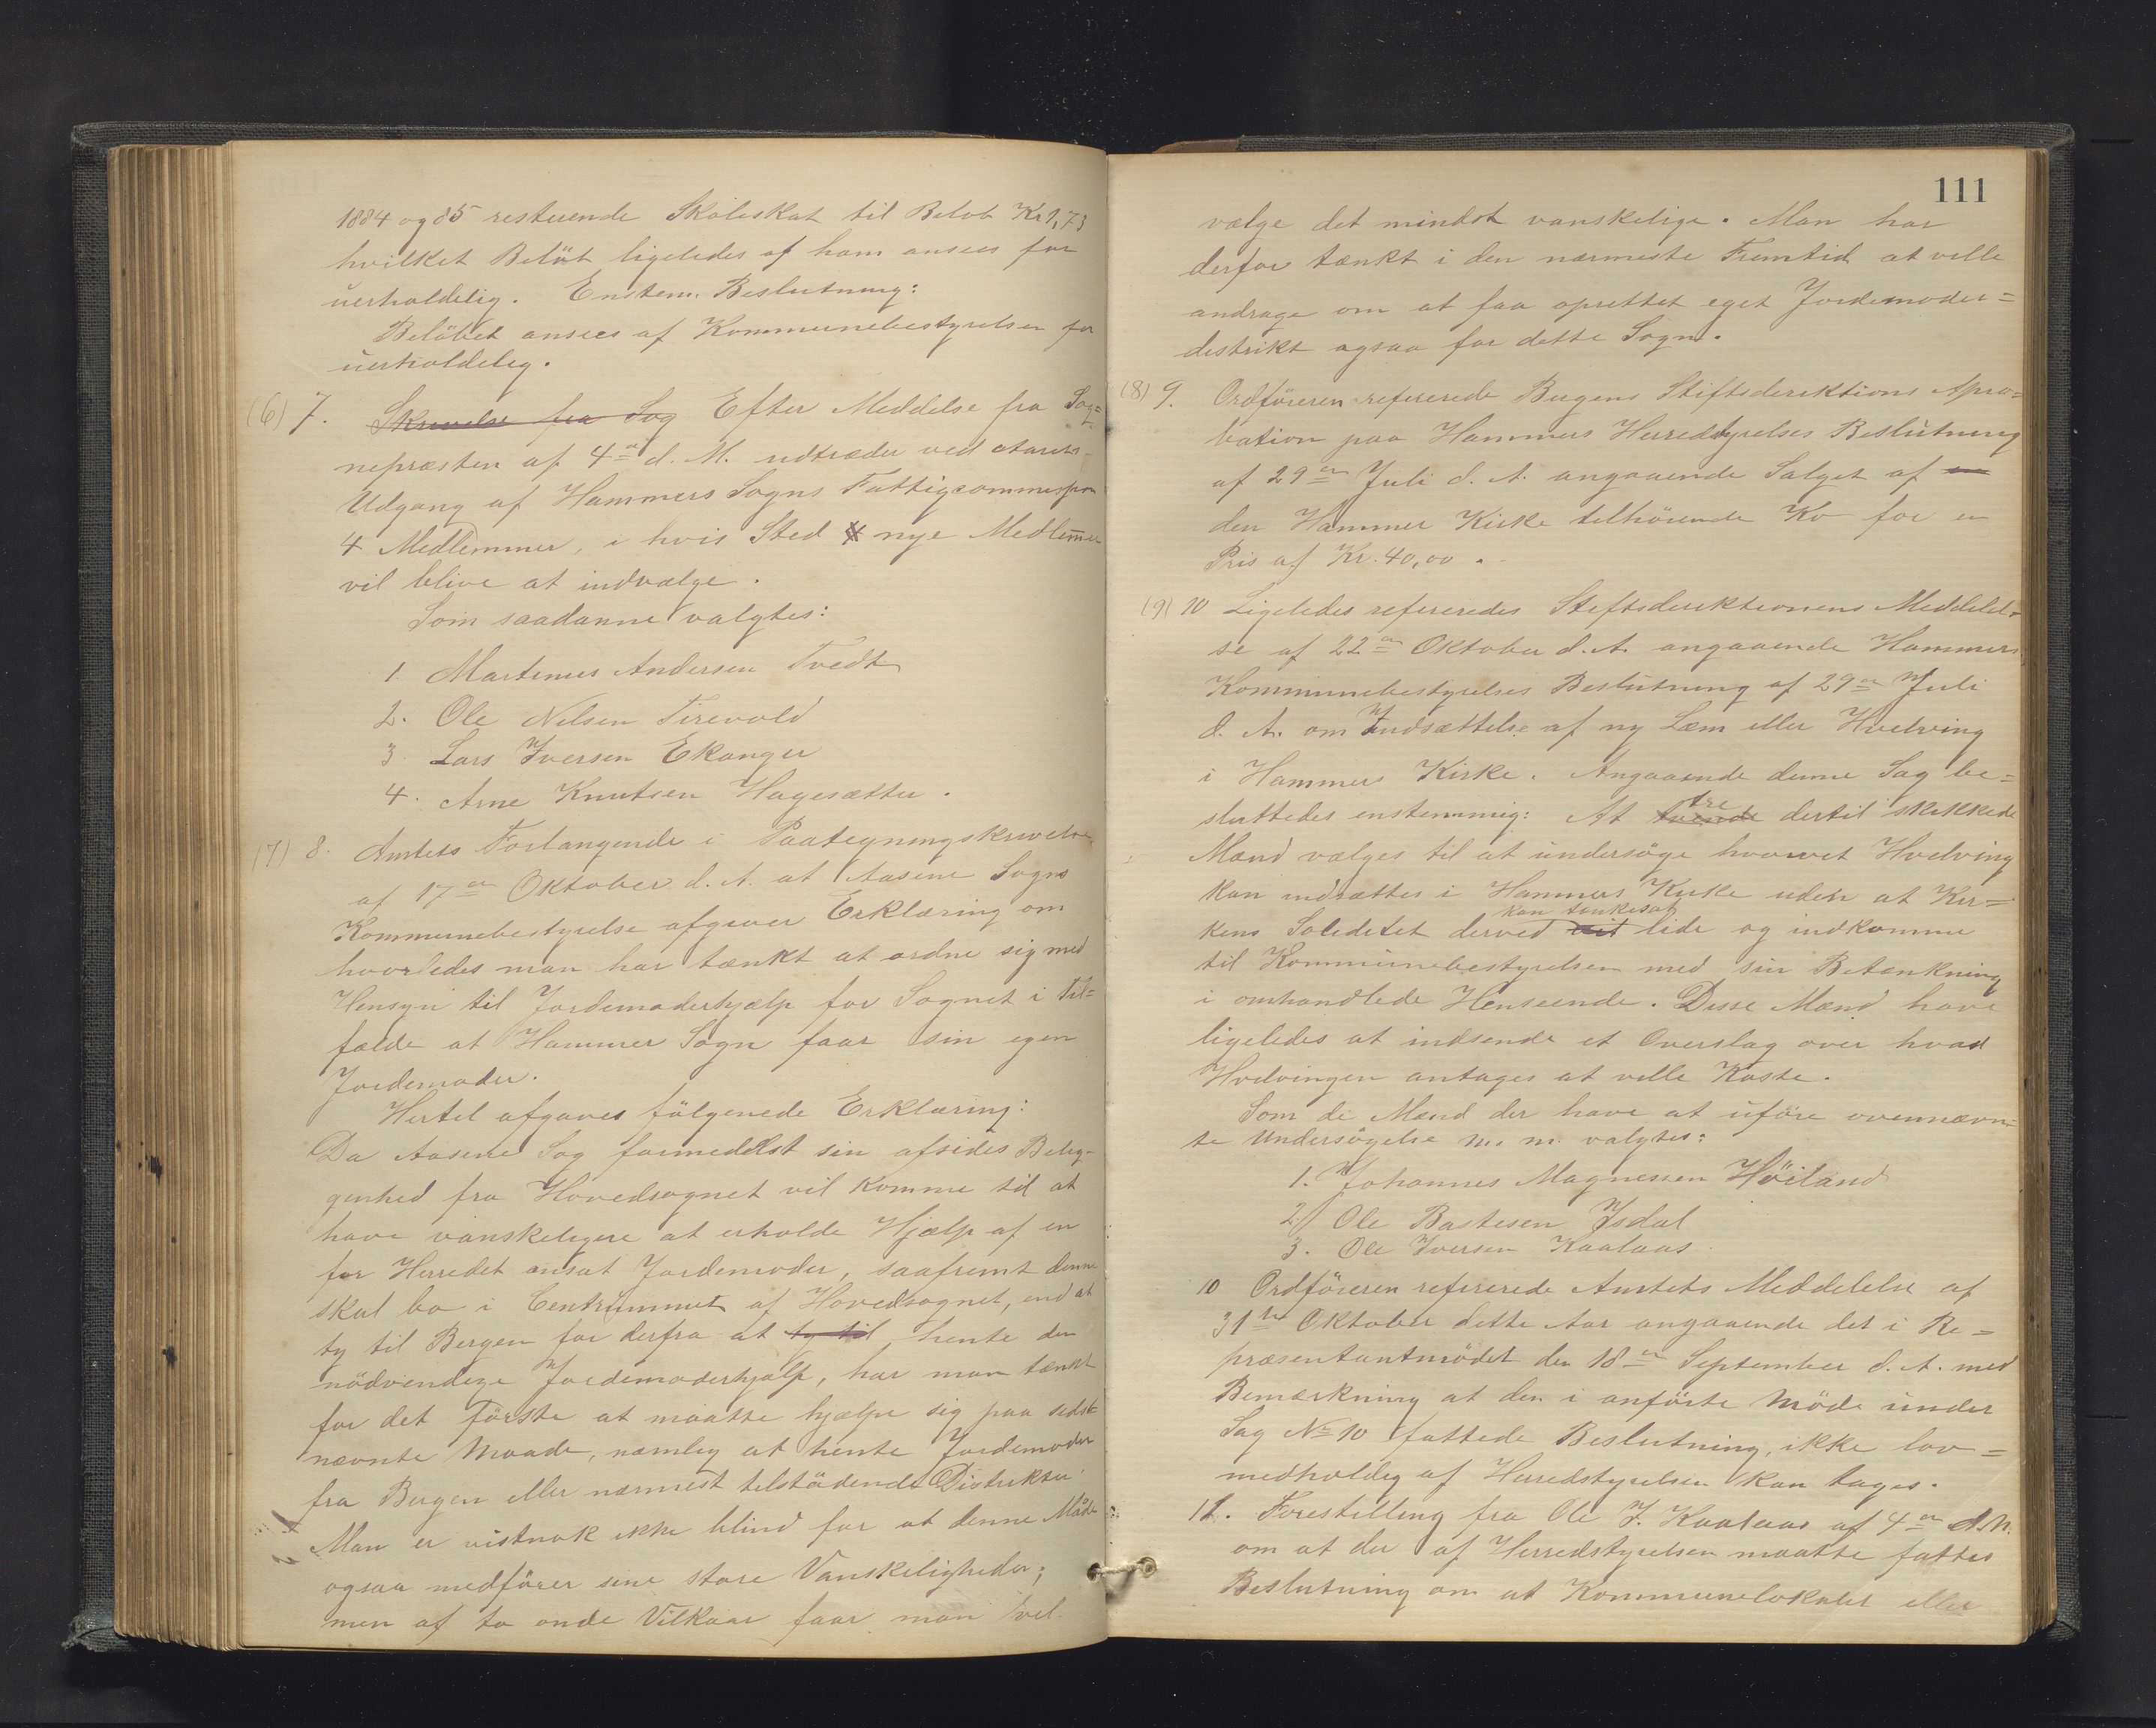 1884 og 85 resterende Skoleskat til Beløb Kr 1,73
hvilket Beløb ligeledes af ham ansees for
uerholdelig. Enstem. Beslutning:
Beløbet ansees af Kommunebestyrelsen for
uerholdeleg.
(6) 7. Skrivelse fra Sog Efter Meddelse fra Sog=
nepræsten af 4de d. M. udtræder ved Aarets
Udgang af Hammers Sogns Fattigcommission
4 Medlemmer, i hvis Sted 4 nye Medlemmer
vil blive at indvælge.
Som saadanne valgtes:
1. Martinus Andersen Tvedt
2. Ole Nilsen Tirevold
3 Lars Iversen Ekanger
4. Arne Knutsen Hagesætter.
(7) 8. Amtets Forlangende i Paategningsskrivelse
af 17de Oktober d. A. at Aasene Sogns
Kommunebestyrelse afgiver Erklæring om
hvorledes man har tænkt at ordne sig med
Hensyn til Jordemoderhjælp for Sognet i Til=
fælde at Hammer Sogn faar sin egen
Jordemoder.
Hertil afgaves følgenede Erklæring:
Da Aasene Sog formedelst sin afsides Belig-
genhed fra Hovedsognet vil komme til at
have vanskeligere at erholde Hjælp af en
for Herredet ansat Jordemoder, saafremt denne
skal bo i Centrummet af Hovedsognet, end at
ty til Bergen for derfra at ty til hente den
nødvendige Jordemoderhjælp, har man tænkt
for det første at maatte hjælpe sig paa sidst=
nævnte Maade, nemlig at hente Jordemoder
fra Bergen eller nærmest tilstødende Distrikter.
Man er vistnok ikke blind for at denne Måde
ogsaa medfører sine store Vanskeligheder;
men af to onde Vilkaar faar man vel
111
vælge det mindst vanskelige. Man har
derfor tænkt i den nærmeste Fremtid at ville
andrage om at faa oprettet eget Jordemoder=
distrikt ogsaa for dette Sogn.
(8) 9. Ordføreren refererede Bergens Stiftsdirektions Apro=
bation paa Hammers Herredstyrelses Beslutning
af 29de Juli d. A. angaaende Salget af en
den Hammer Kirke tilhørende Ko for en
Pris af Kr. 40,00.
(9) 10 Ligeledes refereredes Stiftsdirektionens Meddelel=
se af 22de Oktober d. A. angaaende Hammers
Kommunebestyrelses Beslutning af 29de Juli
d. A. om Indsættelse af ny Læm eller Hvelving
i Hammers Kirke. Angaaende denne Sag be=
sluttedes enstemmig: At tvende tre dertil skikkede
Mænd vælges til at undersøge hvorvidt Hvelving
kan indsættes i Hammers Kirke uden at Kir=
kan tænkes at
kens Soliditet derved vil lide og indkomme
til Kommunebestyrelsen med sin Betænkning
i omhandlede Henseende. Disse Mænd have
ligeledes at indsende et Overslag over hvad
Hvelvingen antages at ville Koste.
Som de Mænd der have at uføre ovennævn=
te Undersøgelse m. m. valgtes:
1. Johannes Magnessen Høiland
2 Ole Bastesen Isdal
3. Ole Iversen Kaalaas
10 Ordføreren refererede Amtets Meddelelse af
31te Oktober dette Aar angaaende det i Re=
præsentantmødet den 18de September d. A. med
Bemærkning at den i anførte Møde under
Sag No 10 fattede Beslutning, ikke lov=
medholdig af Herredstyrelsen kan tages.
11. Forestilling fra Ole I. Kaalaas af 4de d. M.
om at der af Herredstyrelsen maatte fattes
Beslutning om at Kommunelokalet eller